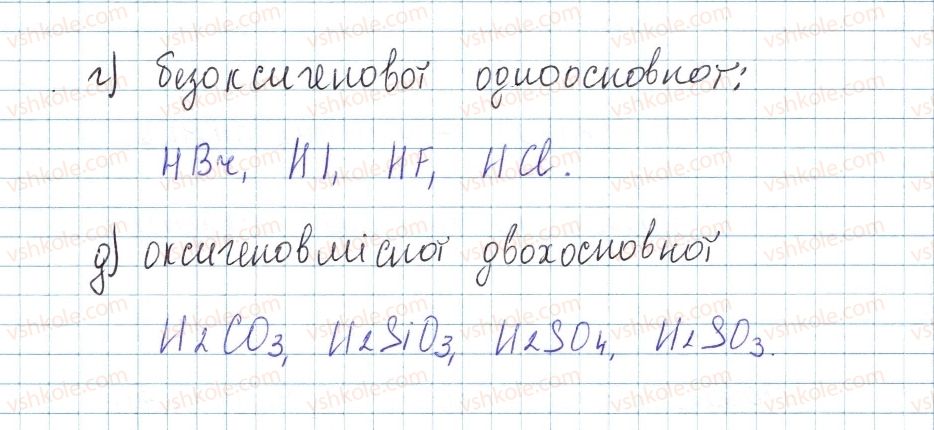 г) безоксигенової одноосновної;
HBr, HI, HF, HCl.
д) оксигеновмісної двохосновної
H2CO3, H2SiO3, H2SO4, H2SO3.